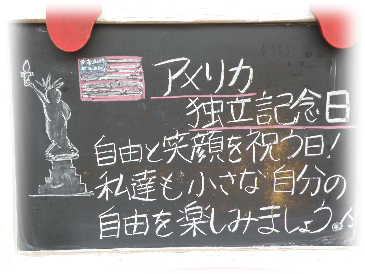 アメリカ
独立記念日
自由と笑顔を祝う日!
私達も小さな自分の
自由を楽しみましょう。